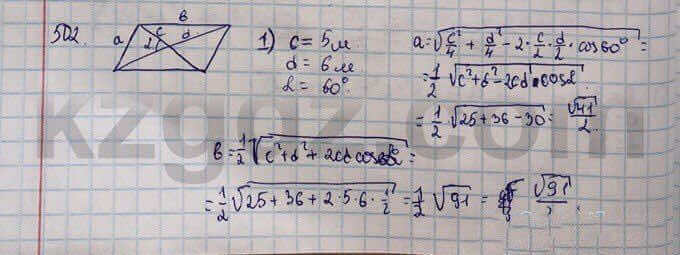 502.
a b c d α
1) c = 5 м
d = 6 м
α = 60°
a = √(c²/4 + d²/4 - 2·c/2·d/2·cos 60°) =
= 1/2 √(c² + d² - 2cd cos α)
= 1/2 · √(25 + 36 - 30) = √41/2.
b = 1/2 √(c² + d² + 2cd cos α) =
= 1/2 √(25 + 36 + 2·5·6·1/2) = 1/2 √91 = √91/2.
kzgdz.com